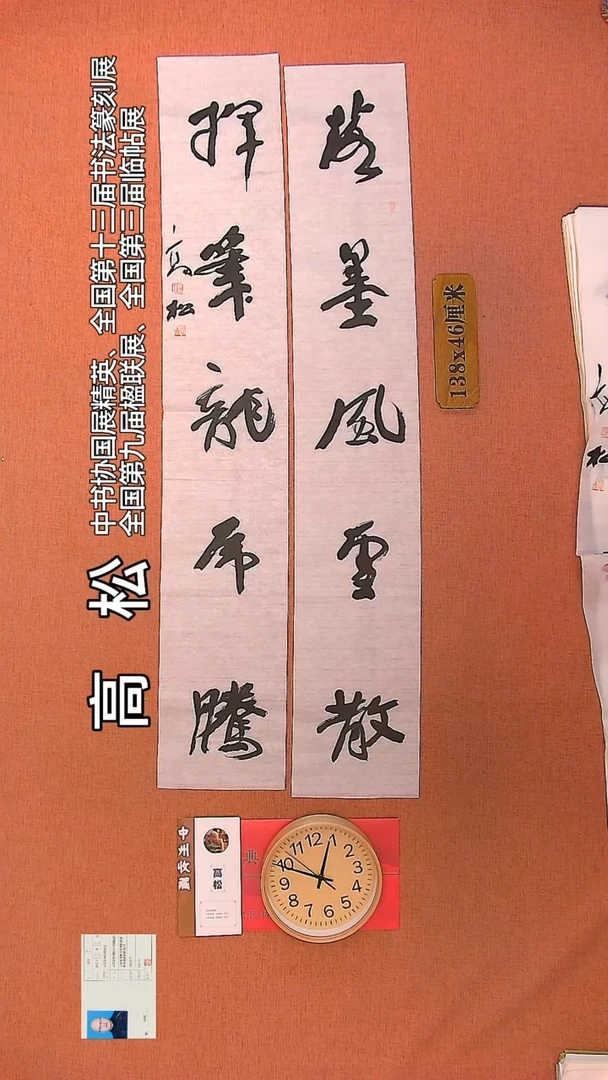 高 松
中书协国展精英、全国第十三届书法篆刻展
全国第九届楹联展、全国第三届临帖展
落墨風雲散
揮筆龍虎騰
高松
138x46厘米
高松
典
12
1
2
3
4
5
6
7
8
9
10
11
松